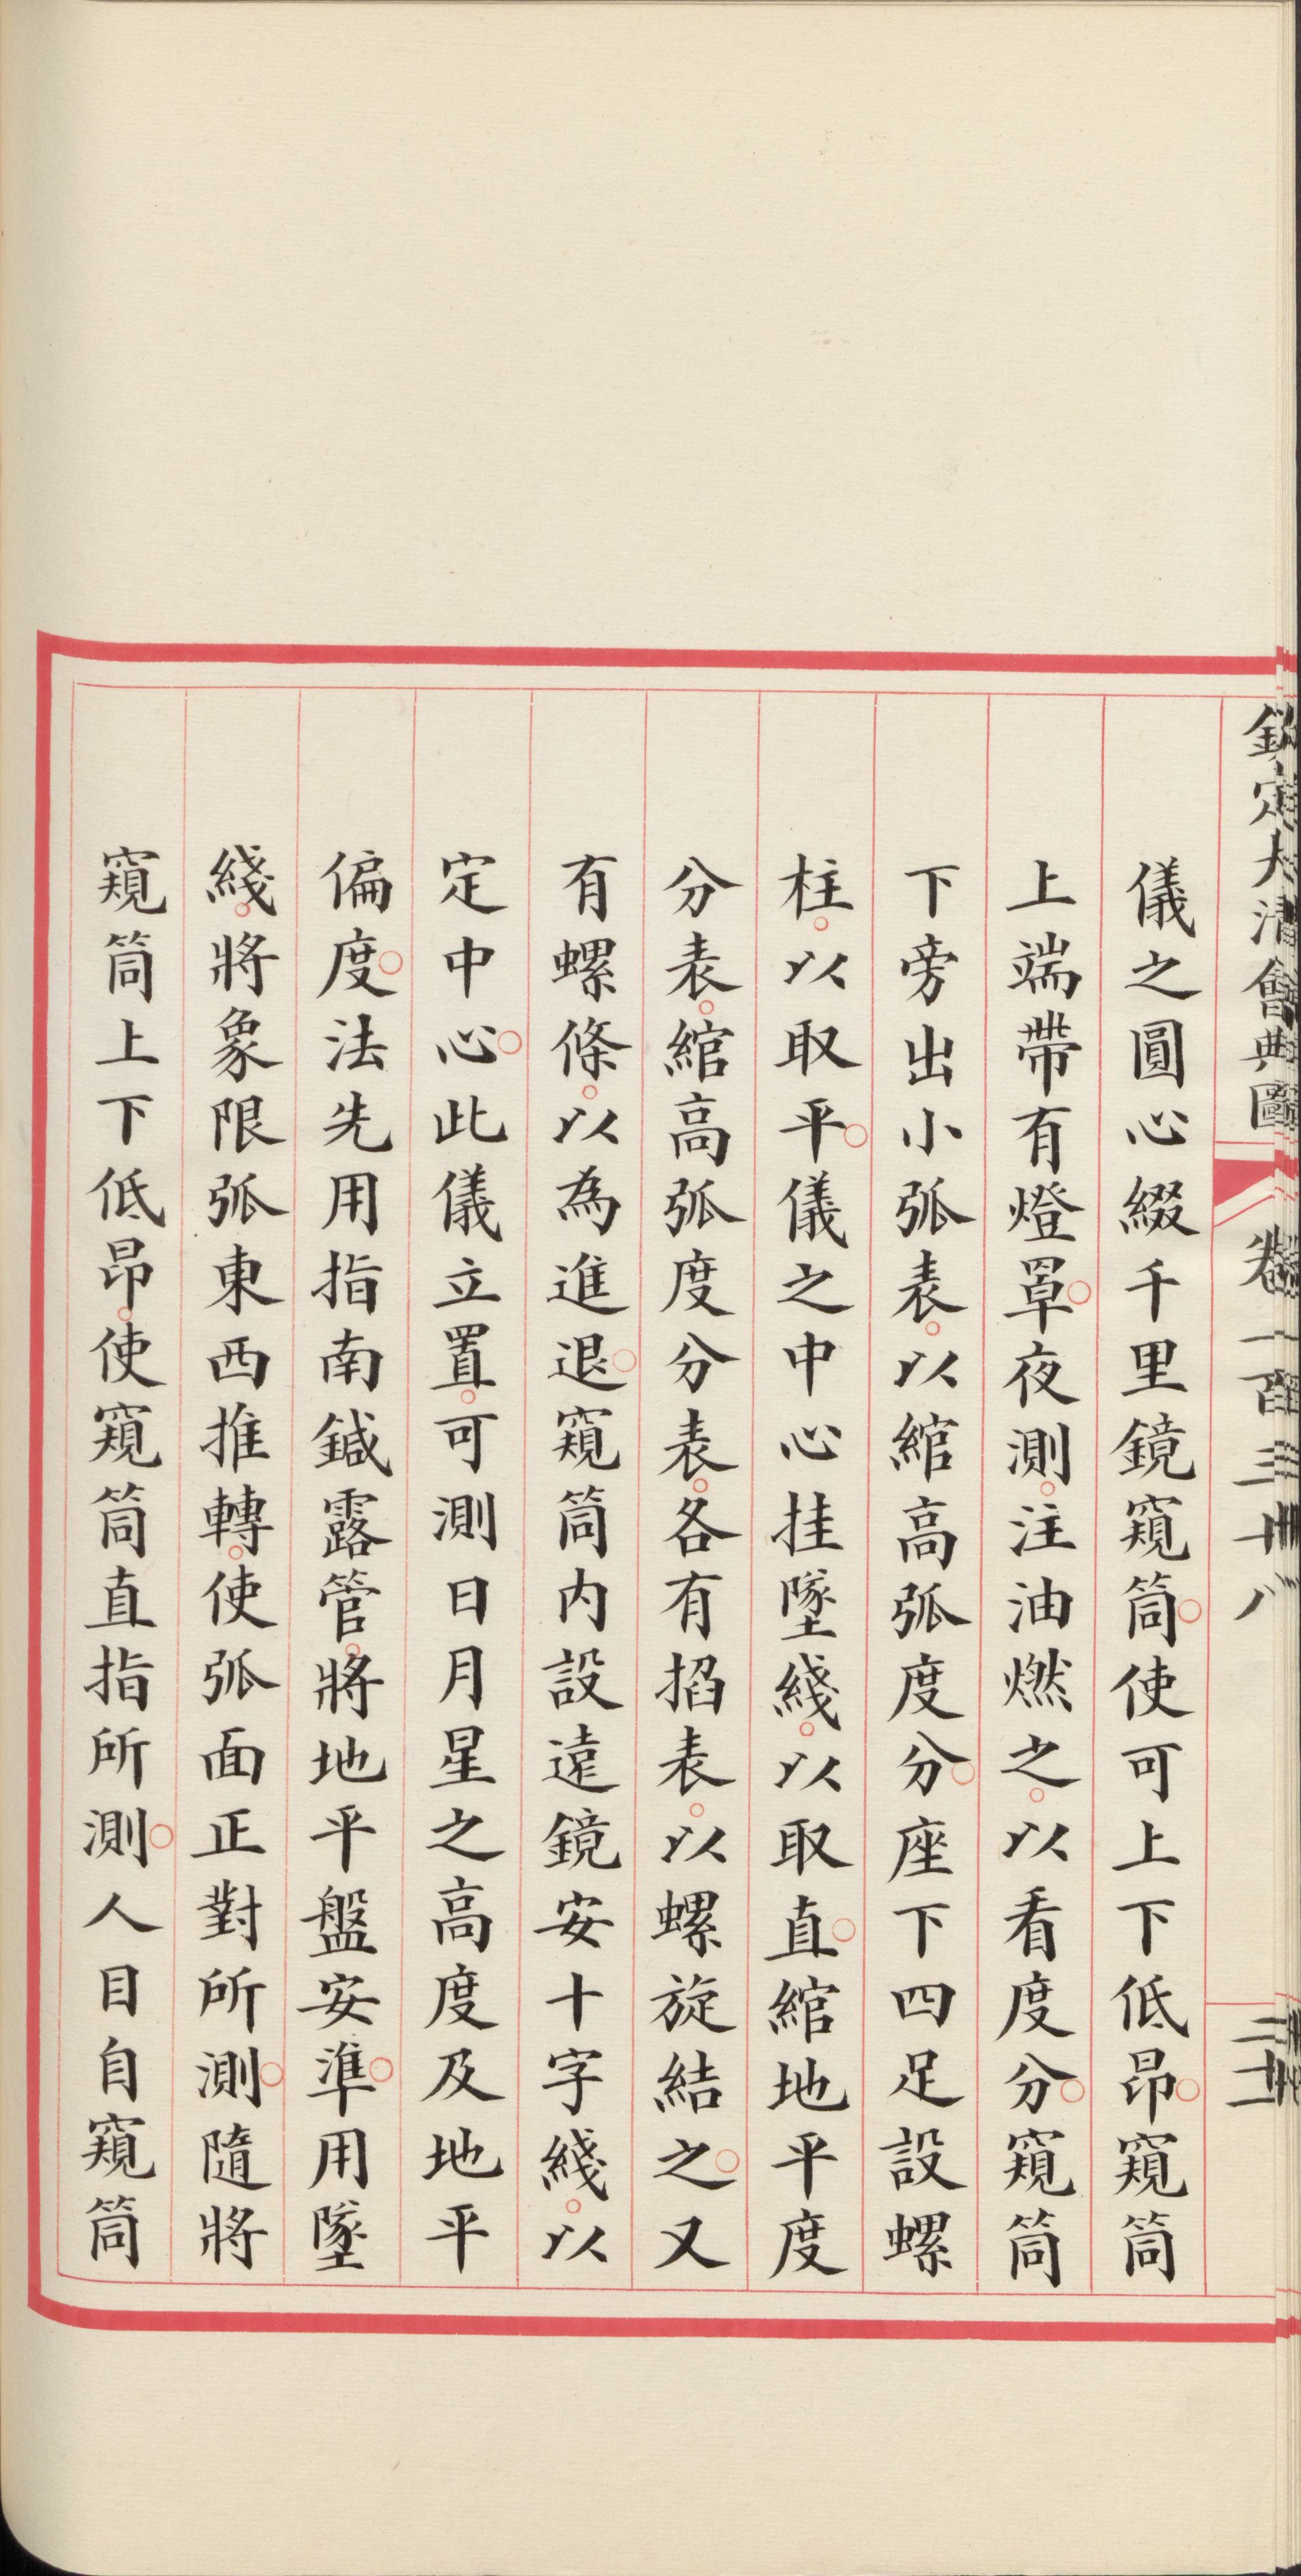 欽定大清會典圖 卷一百三十八 二十一
儀之圓心綴千里鏡窺筒。使可上下低昂。窺筒
上端帶有燈罩。夜測。注油燃之。以看度分。窺筒
下旁出小弧表。以綰高弧度分。座下四足設螺
柱。以取平。儀之中心挂墜綫。以取直。綰地平度
分表。綰高弧度分表。各有掐表。以螺旋結之。又
有螺條。以為進退。窺筒内設遠鏡安十字綫。以
定中心。此儀立置。可測日月星之高度及地平
偏度。法先用指南鍼露管。將地平盤安準。用墜
綫。將象限弧東西推轉。使弧面正對所測。隨將
窺筒上下低昂。使窺筒直指所測。人目自窺筒